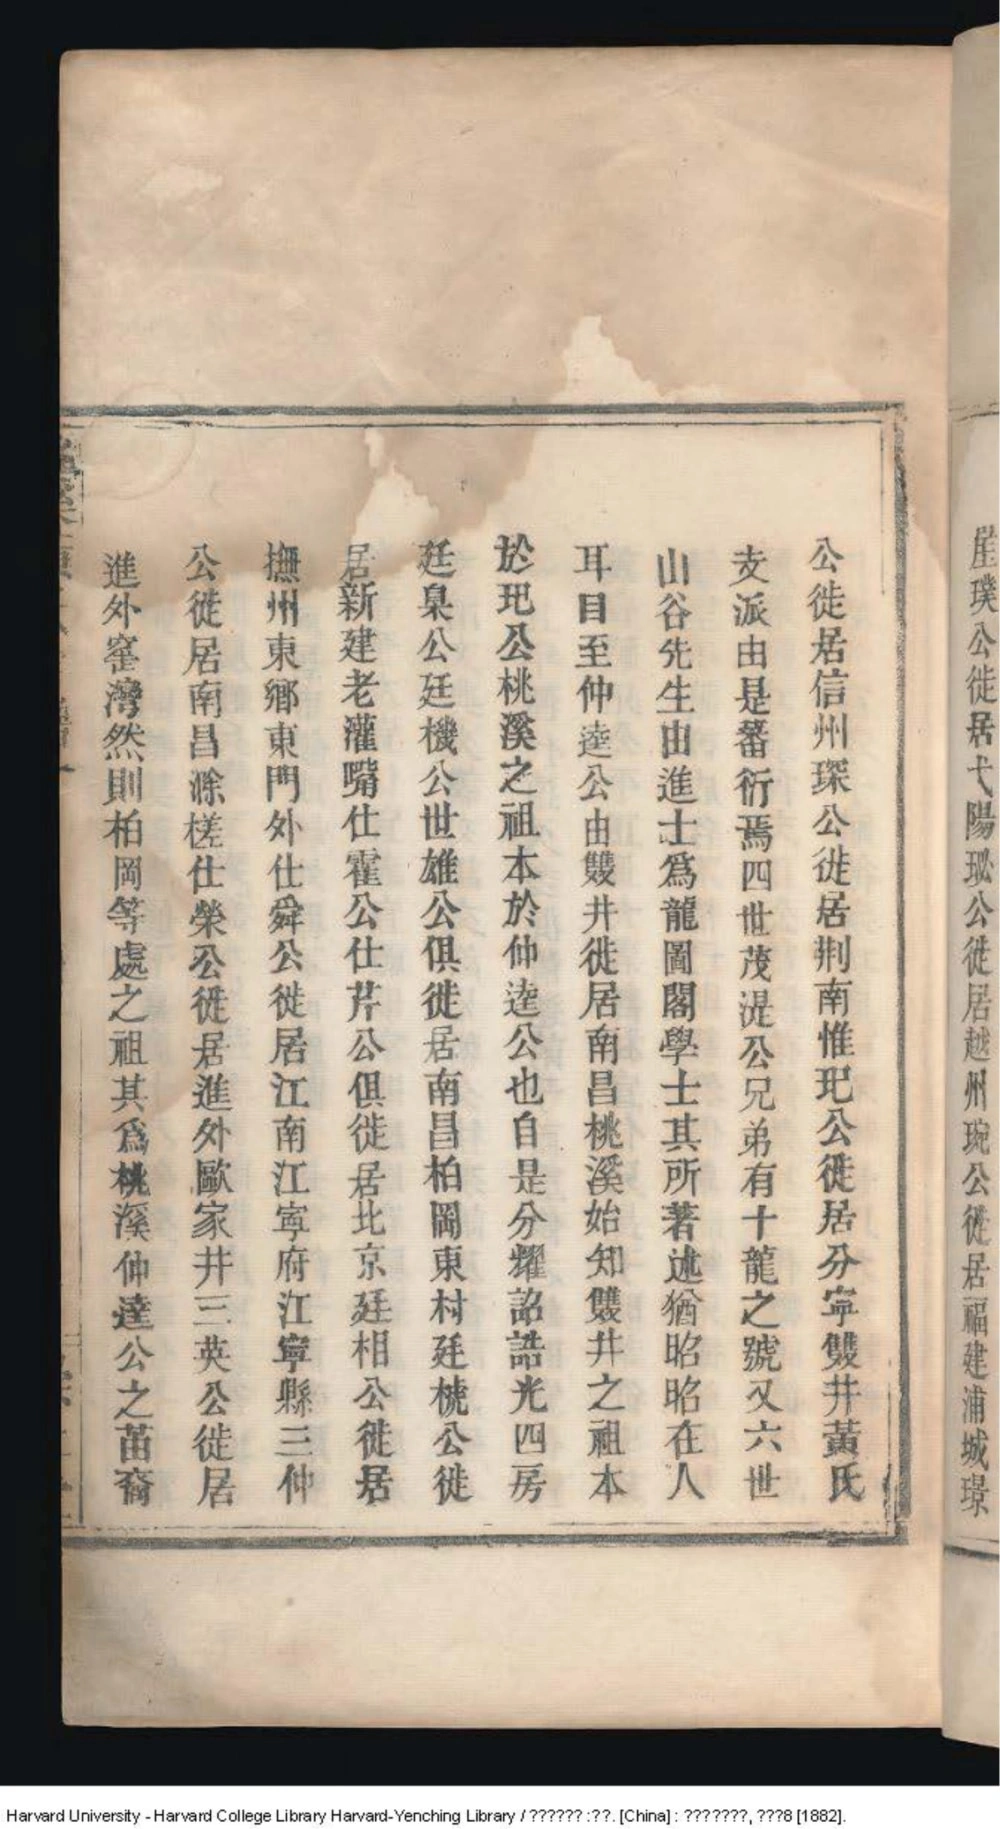 崖璞公徙居弋陽珌公徙居越州琬公徙居福建浦城璟
公徙居信州琛公徙居荆南惟玘公徙居分寧雙井黃氏
支派由是蕃衍焉四世茂湜公兄弟有十龍之號又六世
山谷先生由進士爲龍圖閣學士其所著述猶昭昭在人
耳目至仲逵公由雙井徙居南昌桃溪始知雙井之祖本
於玘公桃溪之祖本於仲逵公也自是分耀詔誥光四房
廷臬公廷機公世雄公俱徙居南昌柏岡東村廷樀公徙
居新建老灌嘴仕霍公仕芹公俱徙居北京廷相公徙居
撫州東鄉東門外仕舜公徙居江南江寧府江寧縣三仲
公徙居南昌滁槎仕榮公徙居進外歐家井三英公徙居
進外窰灣然則柏岡等處之祖其爲桃溪仲逵公之苗裔